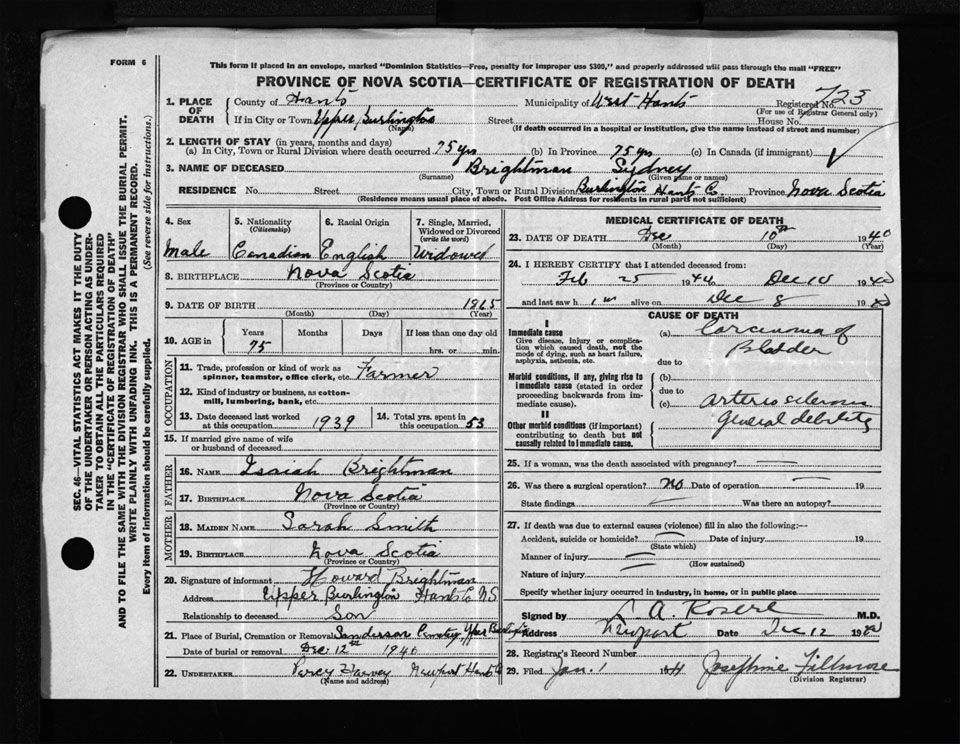 FORM 6
This form if placed in an envelope, marked "Dominion Statistics—Free, penalty for improper use $300," and properly addressed will pass through the mail "FREE"
PROVINCE OF NOVA SCOTIA—CERTIFICATE OF REGISTRATION OF DEATH
SEC. 46—VITAL STATISTICS ACT MAKES IT THE DUTY
OF THE UNDERTAKER OR PERSON ACTING AS UNDER-
TAKER TO OBTAIN ALL THE PARTICULARS REQUIRED
IN THE "CERTIFICATE OF REGISTRATION OF DEATH"
AND TO FILE THE SAME WITH THE DIVISION REGISTRAR WHO SHALL ISSUE THE BURIAL PERMIT.
WRITE PLAINLY WITH UNFADING INK. THIS IS A PERMANENT RECORD.
Every item of information should be carefully supplied. (See reverse side for instructions.)
1. PLACE OF DEATH
County of Hants Municipality of West Hants Registered No. 723
(For use of Registrar General only)
If in City or Town Upper Burlington Street House No.
(Name) (If death occurred in a hospital or institution, give the name instead of street and number)
2. LENGTH OF STAY (in years, months and days)
(a) In City, Town or Rural Division where death occurred 75 yrs (b) In Province 75 yrs (c) In Canada (if immigrant)
3. NAME OF DECEASED Brightman Sydney
(Surname) (Given name or names)
RESIDENCE No. Street City, Town or Rural Division Burlington Hants Co Province Nova Scotia
(Residence means usual place of abode. Post Office Address for residents in rural parts not sufficient)
4. Sex 5. Nationality (Citizenship) 6. Racial Origin 7. Single, Married, Widowed or Divorced (write the word)
Male Canadian English Widowed
8. BIRTHPLACE Nova Scotia
(Province or Country)
9. DATE OF BIRTH 1865
(Month) (Day) (Year)
10. AGE in Years Months Days If less than one day old
75 hrs. or min.
OCCUPATION
11. Trade, profession or kind of work as spinner, teamster, office clerk, etc. Farmer
12. Kind of industry or business, as cotton-mill, lumbering, bank, etc.
13. Date deceased last worked at this occupation 1939 14. Total yrs. spent in this occupation 53
15. If married give name of wife or husband of deceased
FATHER
16. NAME Isaiah Brightman
17. BIRTHPLACE Nova Scotia
(Province or Country)
MOTHER
18. MAIDEN NAME Sarah Smith
19. BIRTHPLACE Nova Scotia
(Province or Country)
20. Signature of informant Howard Brightman
Address Upper Burlington Hants Co N.S
Relationship to deceased Son
21. Place of Burial, Cremation or Removal Sanderson Cemetery Upper Burlington
Date of burial or removal Dec. 12th 1940
22. UNDERTAKER Percy Harvey Newport Hants Co
(Name and address)
MEDICAL CERTIFICATE OF DEATH
23. DATE OF DEATH Dec 10th 1940
(Month) (Day) (Year)
24. I HEREBY CERTIFY that I attended deceased from:
Feb 25 1940 Dec 10 1940
and last saw him alive on Dec 8 1940
CAUSE OF DEATH
I
Immediate cause
Give disease, injury or complica-
tion which caused death, not the
mode of dying, such as heart failure,
asphyxia, asthenia, etc.
(a) Carcinoma of
Bladder
due to
Morbid conditions, if any, giving rise to
immediate cause (stated in order
proceeding backwards from im-
mediate cause).
(b)
due to
(c) arterio sclerosis
II
Other morbid conditions (if important)
contributing to death but not
causally related to immediate cause.
general debility
25. If a woman, was the death associated with pregnancy?
26. Was there a surgical operation? No Date of operation 19
State findings Was there an autopsy?
27. If death was due to external causes (violence) fill in also the following:—
Accident, suicide or homicide? Date of injury 19
(State which)
Manner of injury
(How sustained)
Nature of injury
Specify whether injury occurred in industry, in home, or in public place
Signed by M.D.
Address Newport Date Dec 12 1940
28. Registrar's Record Number
29. Filed Jan. 1 1941 Josephine Fillmore
(Division Registrar)